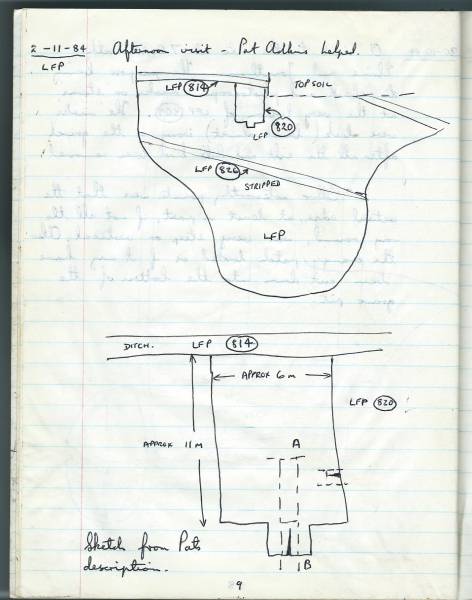 2-11-84 Afternoon visit - Pat Adkins helped.
LFP
LFP 814
TOP SOIL
LFP 820
LFP 826
STRIPPED
LFP
DITCH. LFP 814
APPROX 6 m
LFP 820
APPROX 11 M
A
Sketch from Pats
description.
B
9